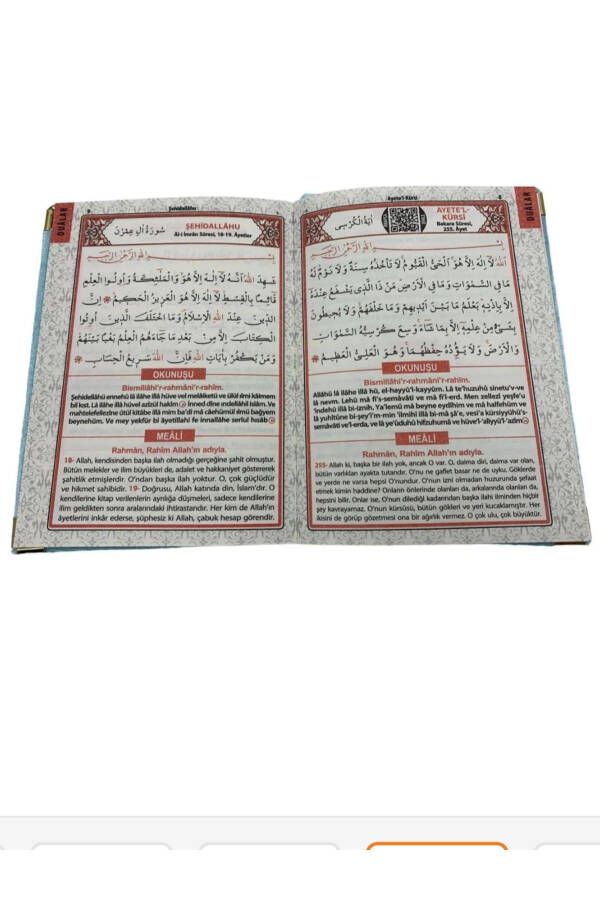 DUÂLAR
Ayete'l-Kürsî
8
اٰيَةُ الْكُرْسِى
AYETE'L-
KÜRSÎ
Bakara Sûresi,
255. Âyet
بِسْمِ اللّٰهِ الرَّحْمٰنِ الرَّحِيمِ
اَللّٰهُ لَٓا اِلٰهَ اِلَّا هُوَ اَلْحَىُّ الْقَيُّومُ لَا تَأْخُذُهُ سِنَةٌ وَلَا نَوْمٌ لَهُ
مَا فِى السَّمٰوَاتِ وَمَا فِى الْاَرْضِ مَنْ ذَا الَّذِى يَشْفَعُ عِنْدَهُ
اِلَّا بِاِذْنِهِ يَعْلَمُ مَا بَيْنَ اَيْدِيهِمْ وَمَا خَلْفَهُمْ وَلَا يُحِيطُونَ
بِشَىْءٍ مِنْ عِلْمِهِ اِلَّا بِمَا شَٓاءَ وَسِعَ كُرْسِيُّهُ السَّمٰوَاتِ
وَالْاَرْضَ وَلَا يَؤُدُهُ حِفْظُهُمَا وَهُوَ الْعَلِىُّ الْعَظِيمُ
OKUNUŞU
Bismillâhi'r-rahmâni'r-rahîm.
Allâhü lâ ilâhe illâ hû, el-hayyü'l-kayyûm. Lâ te'huzuhû sinetü'v-ve
lâ nevm. Lehû mâ fi's-semâvâti ve mâ fi'l-erd. Men zellezî yeşfe'u
'ındehû illâ bi-iznih. Ya'lemü mâ beyne eydîhim ve mâ halfehüm ve
lâ yuhîtûne bi-şey'i'm-min 'ilmihî illâ bi-mâ şâ'e, vesi'a kürsiyyühü's-
semâvâti ve'l-erda, ve lâ ye'ûduhû hıfzuhumâ ve hüve'l-'aliyyü'l-'azîm
MEÂLİ
Rahmân, Rahîm Allah'ın adıyla.
255- Allah ki, başka bir ilah yok, ancak O var. O, daima diri, daima var olan,
bütün varlıkları ayakta tutandır. O'nu ne gaflet basar ne de uyku. Göklerde
ve yerde ne varsa hepsi O'nundur. O'nun izni olmadan huzurunda şefaat
etmek kimin haddine? Onların önlerinde olanları da, arkalarında olanları da,
hepsini bilir. Onlar ise, O'nun dilediği kadarından başka ilahi ilminden hiçbir
şey kavrayamaz. O'nun kürsüsü, bütün gökleri ve yeri kucaklamıştır. Her
ikisini de görüp gözetmesi ona bir ağırlık vermez. O çok ulu, çok büyüktür.
DUÂLAR
9
Şehidallâhu
سُورَةُ اٰلِ عِمْرٰنَ
ŞEHİDALLÂHU
Al-i İmrân Sûresi, 18-19. Âyetler
بِسْمِ اللّٰهِ الرَّحْمٰنِ الرَّحِيمِ
شَهِدَ اللّٰهُ اَنَّهُ لَٓا اِلٰهَ اِلَّا هُوَ وَالْمَلٰٓئِكَةُ وَاُولُوا الْعِلْمِ
قَٓائِمًا بِالْقِسْطِ لَٓا اِلٰهَ اِلَّا هُوَ الْعَزِيزُ الْحَكِيمُ اِنَّ
الدِّينَ عِنْدَ اللّٰهِ الْاِسْلَامُ وَمَا اخْتَلَفَ الَّذِينَ اُوتُوا
الْكِتَابَ اِلَّا مِنْ بَعْدِ مَا جَٓاءَهُمُ الْعِلْمُ بَغْيًا بَيْنَهُمْ
وَمَنْ يَكْفُرْ بِاٰيَاتِ اللّٰهِ فَاِنَّ اللّٰهَ سَرِيعُ الْحِسَابِ
OKUNUŞU
Bismillâhi'r-rahmâni'r-rahîm.
Şehidellâhü ennehû lâ ilâhe illâ hüve vel melâiketü ve ülül ılmi kâimem
bil kıst. Lâ ilâhe illâ hüvel azîzül hakîm İnned dîne ındellâhil islâm. Ve
mahtelefellezîne ûtül kitâbe illâ mim ba'di mâ câehümül ılmü bağyem
beynehüm. Ve mey yekfür bi âyetillahi fe innallâhe serîul hısâb
MEÂLİ
Rahmân, Rahîm Allah'ın adıyla.
18- Allah, kendisinden başka ilah olmadığı gerçeğine şahit olmuştur.
Bütün melekler ve ilim büyükleri de, adalet ve hakkaniyet göstererek
şahitlik etmişlerdir. O'ndan başka ilah yoktur. O, çok güçlüdür
ve hikmet sahibidir. 19- Doğrusu, Allah katında din, İslam'dır. O
kendilerine kitap verilenlerin ayrılığa düşmeleri, sadece kendilerine
ilim geldikten sonra aralarındaki ihtirastandır. Her kim de Allah'ın
âyetlerini inkâr ederse, şüphesiz ki Allah, çabuk hesap görendir.